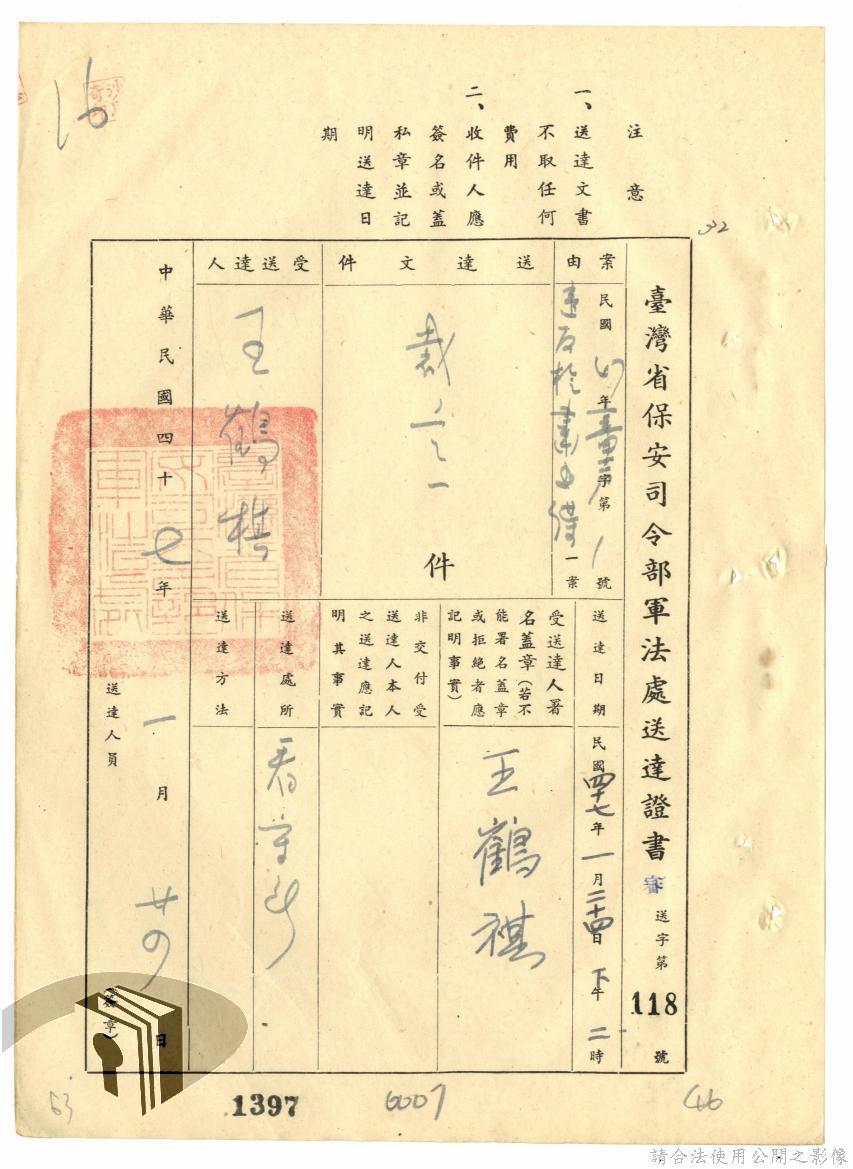 16
注意
一、送達文書
不取任何
費用
二、收件人應
簽名或蓋
私章並記
明送達日
期
臺灣省保安司令部軍法處送達證書
審送字第118號
案由
民國 年 字第 號
一案
送達文件
裁定一件
受送達人
王鶴棋
送達日期
民國四十七年一月二十四日下午二時
受送達人署
名蓋章(若不
能署名蓋章
或拒絕者應
記明事實)
王鶴祺
非交付受
送達人本人
之送達應記
明其事實
送達處所
看守所
送達方法
中華民國四十七年一月廿四日
送達人員
(簽章)
63
1397
6007
46
請合法使用公開之影像